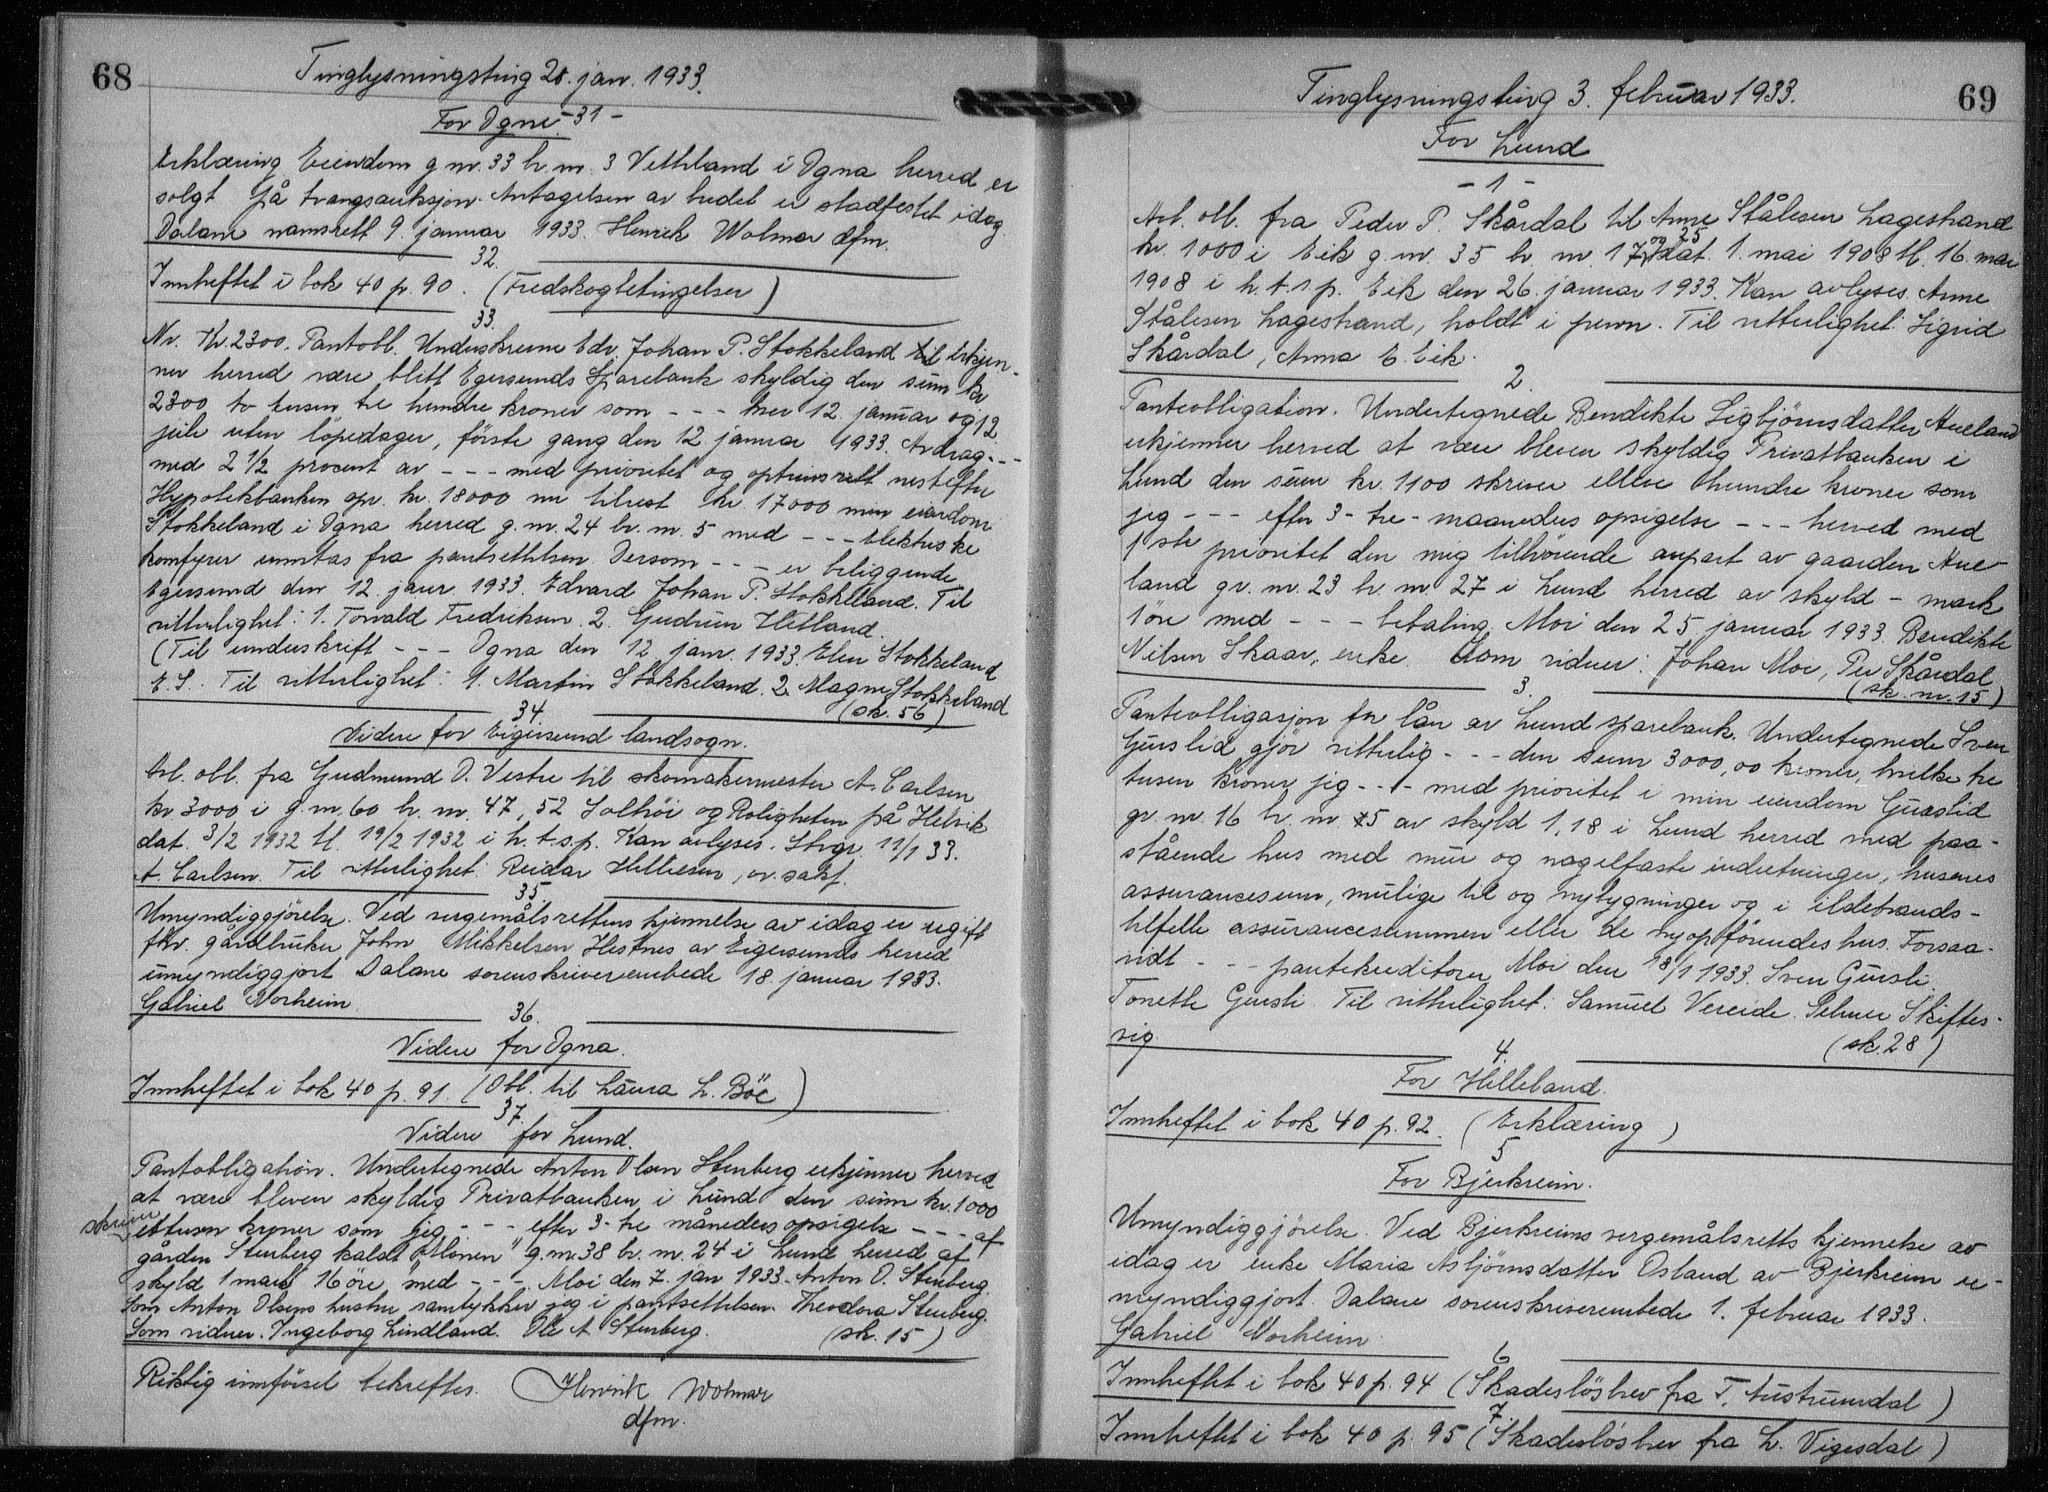 68
Tinglysningsting 20. jan. 1933.
For Ogne. -31-
Erklæring Eiendom g.nr. 33 br.nr. 3 Vethland i Ogna herred er
solgt på tvangsauksjon. Antagelsen av budet er stadfestet idag.
Dalane namsrett 9 januar 1933. Henrik Wolmar dfm.
32.
Innheftet i bok 40 p. 90. (Fredskogbetingelser)
33.
Nr. Kr. 2300. Pantobl. Underskrevne Edv. Johan P. Stokkeland til erkjen-
ner herved være blitt Egersunds Sparebank skyldig den sum kr
2300 to tusen tre hundre kroner som - - - hver 12. januar og 12.
juli uten løpedager, første gang den 12 januar 1933. Avdrag - - -
med 2 1/2 procent av - - - med prioritet og optrinsrett nestefter
Hypotekbanken opr. kr. 18000 nu tilrest kr. 17000 min eiendom
Stokkeland i Ogna herred g.nr. 24 br.nr. 5 med - - - elektriske
komfyrer unntas fra pantsettelsen. Dersom - - - er beliggende
Egersund den 12. janr 1933. Edvard Johan P. Stokkeland. Til
vitterlighet: 1. Torvald Fredriksen. 2. Gudrun Hetland.
(Til underskrift - - - Ogna den 12 janr. 1933. Elen Stokkeland
E.S. Til vitterlighet: 1. Martin Stokkeland. 2. Magne Stokkeland
(sk. 56)
34
Videre for Eigersund landsogn.
Avl. obl. fra Gudmund O. Vestre til skomakermester A. Carlsen
kr. 3000 i g.nr. 60 br.nr. 47, 52 Solhöi og Roligheten på Helvik
dat. 3/2 1932 tl. 19/2 1932 i h.t.s.p. Kan avlyses. Stvgr. 11/1 33.
A. Carlsen. Til vitterlighet: Reidar Helliesen, ov.sakf.
35.
Umyndiggjörelse. Ved vergemålsrettens kjennelse av idag er ugift
fhv. gårdbruker John Mikkelsen Hestnes av Eigersunds herred
umyndiggjort. Dalane sorenskriverembede 18. januar 1933.
Gabriel Norheim.
36.
Videre for Ogna.
Innheftet i bok 40 p. 91. (Obl. til Laura L. Böe)
37
Videre for Lund.
Pantobligation. Undertegnede Anton Olsen Stenberg erkjenner herved
at være bleven skyldig Privatbanken i Lund den sum kr. 1000
skriver ettusen kroner som jeg - - - efter 3-tre måneders opsigelse - - - af
gården Stenberg kaldt "Monen" g.nr. 38 br.nr. 24 i Lund herred af
skyld 1 mark 16 öre med - - - Moi den 7. jan 1933. Anton O. Stenberg.
Som Anton Olsens hustru samtykker jeg i pantsettelsen. Theodora Stenberg.
Som vidner. Ingeborg Lindland. Ole A Stenberg. (sk. 15)
Riktig innförsel bekreftes. Henrik Wolmar
dfm.
69
Tinglysningsting 3. februar 1933.
For Lund
-1-
Avl. obl. fra Peder P. Skårdal til Anne Stålesen Lagestrand
kr. 1000 i Eik g.nr. 35 br.nr. 17 og 25 dat. 1. mai 1908 tl. 16. mai
1908 i h.t.s.p. Eik den 26. januar 1933. Kan avlyses. Anne
Stålesen Lagestrand, holdt i penn. Til vitterlighet: Sigrid
Skårdal, Anna E. Eik.
2.
Panteobligation. Undertegnede Bendikte Sigbjörnsdatter Aueland
erkjenner herved at være bleven skyldig Privatbanken i
Lund den sum kr. 1100 skriver elleve hundre kroner som
jeg - - - efter 3-tre-maaneders opsigelse - - - herved med
1ste prioritet den mig tilhörende anpart av gaarden Aue-
land gr.nr. 23 br.nr. 27 i Lund herred av skyld - mark
1 öre med - - - betaling. Moi den 25 januar 1933. Bendikte
Nilsen Skaar, enke. Som vidner: Johan Moi, Per Skårdal
(sk. nr. 15)
3.
Panteobligasjon for lån av Lund sparebank. Undertegnede Sven
Gurslid gjör vitterlig - - - den sum 3000,00 kroner, hvilke tre
tusen kroner jeg - - - med prioritet i min eiendom Gurslid
gr.nr. 16 br.nr. 5 av skyld 1,18 i Lund herred med paa-
stående hus med mur og nagelfaste indretninger, husenes
assurancesum, mulige til og nybygninger og i ildebrands-
tilfelle assurancesummen eller de nyopförendes hus. Forsaa-
vidt - - - pantekreditorer. Moi den 18/1 1933. Sven Gursli.
Tonette Gursli. Til vitterlighet: Samuel Vereide. Selmer Skiftes-
vig (sk. 28)
4.
For Helleland.
Innheftet i bok 40 p. 92. (Erklæring)
5
For Bjerkreim.
Umyndiggjörelse. Ved Bjerkreims vergemålsretts kjennelse av
idag er enke Maria Asbjörnsdatter Osland av Bjerkreim u-
myndiggjort. Dalane sorenskriverembede 1. februar 1933.
Gabriel Norheim.
6
Innheftet i bok 40 p. 94 (Skadeslösbrev fra T. Austrumdal)
7.
Innheftet i bok 40 p. 95 (Skadeslösbrev fra L. Vigesdal)